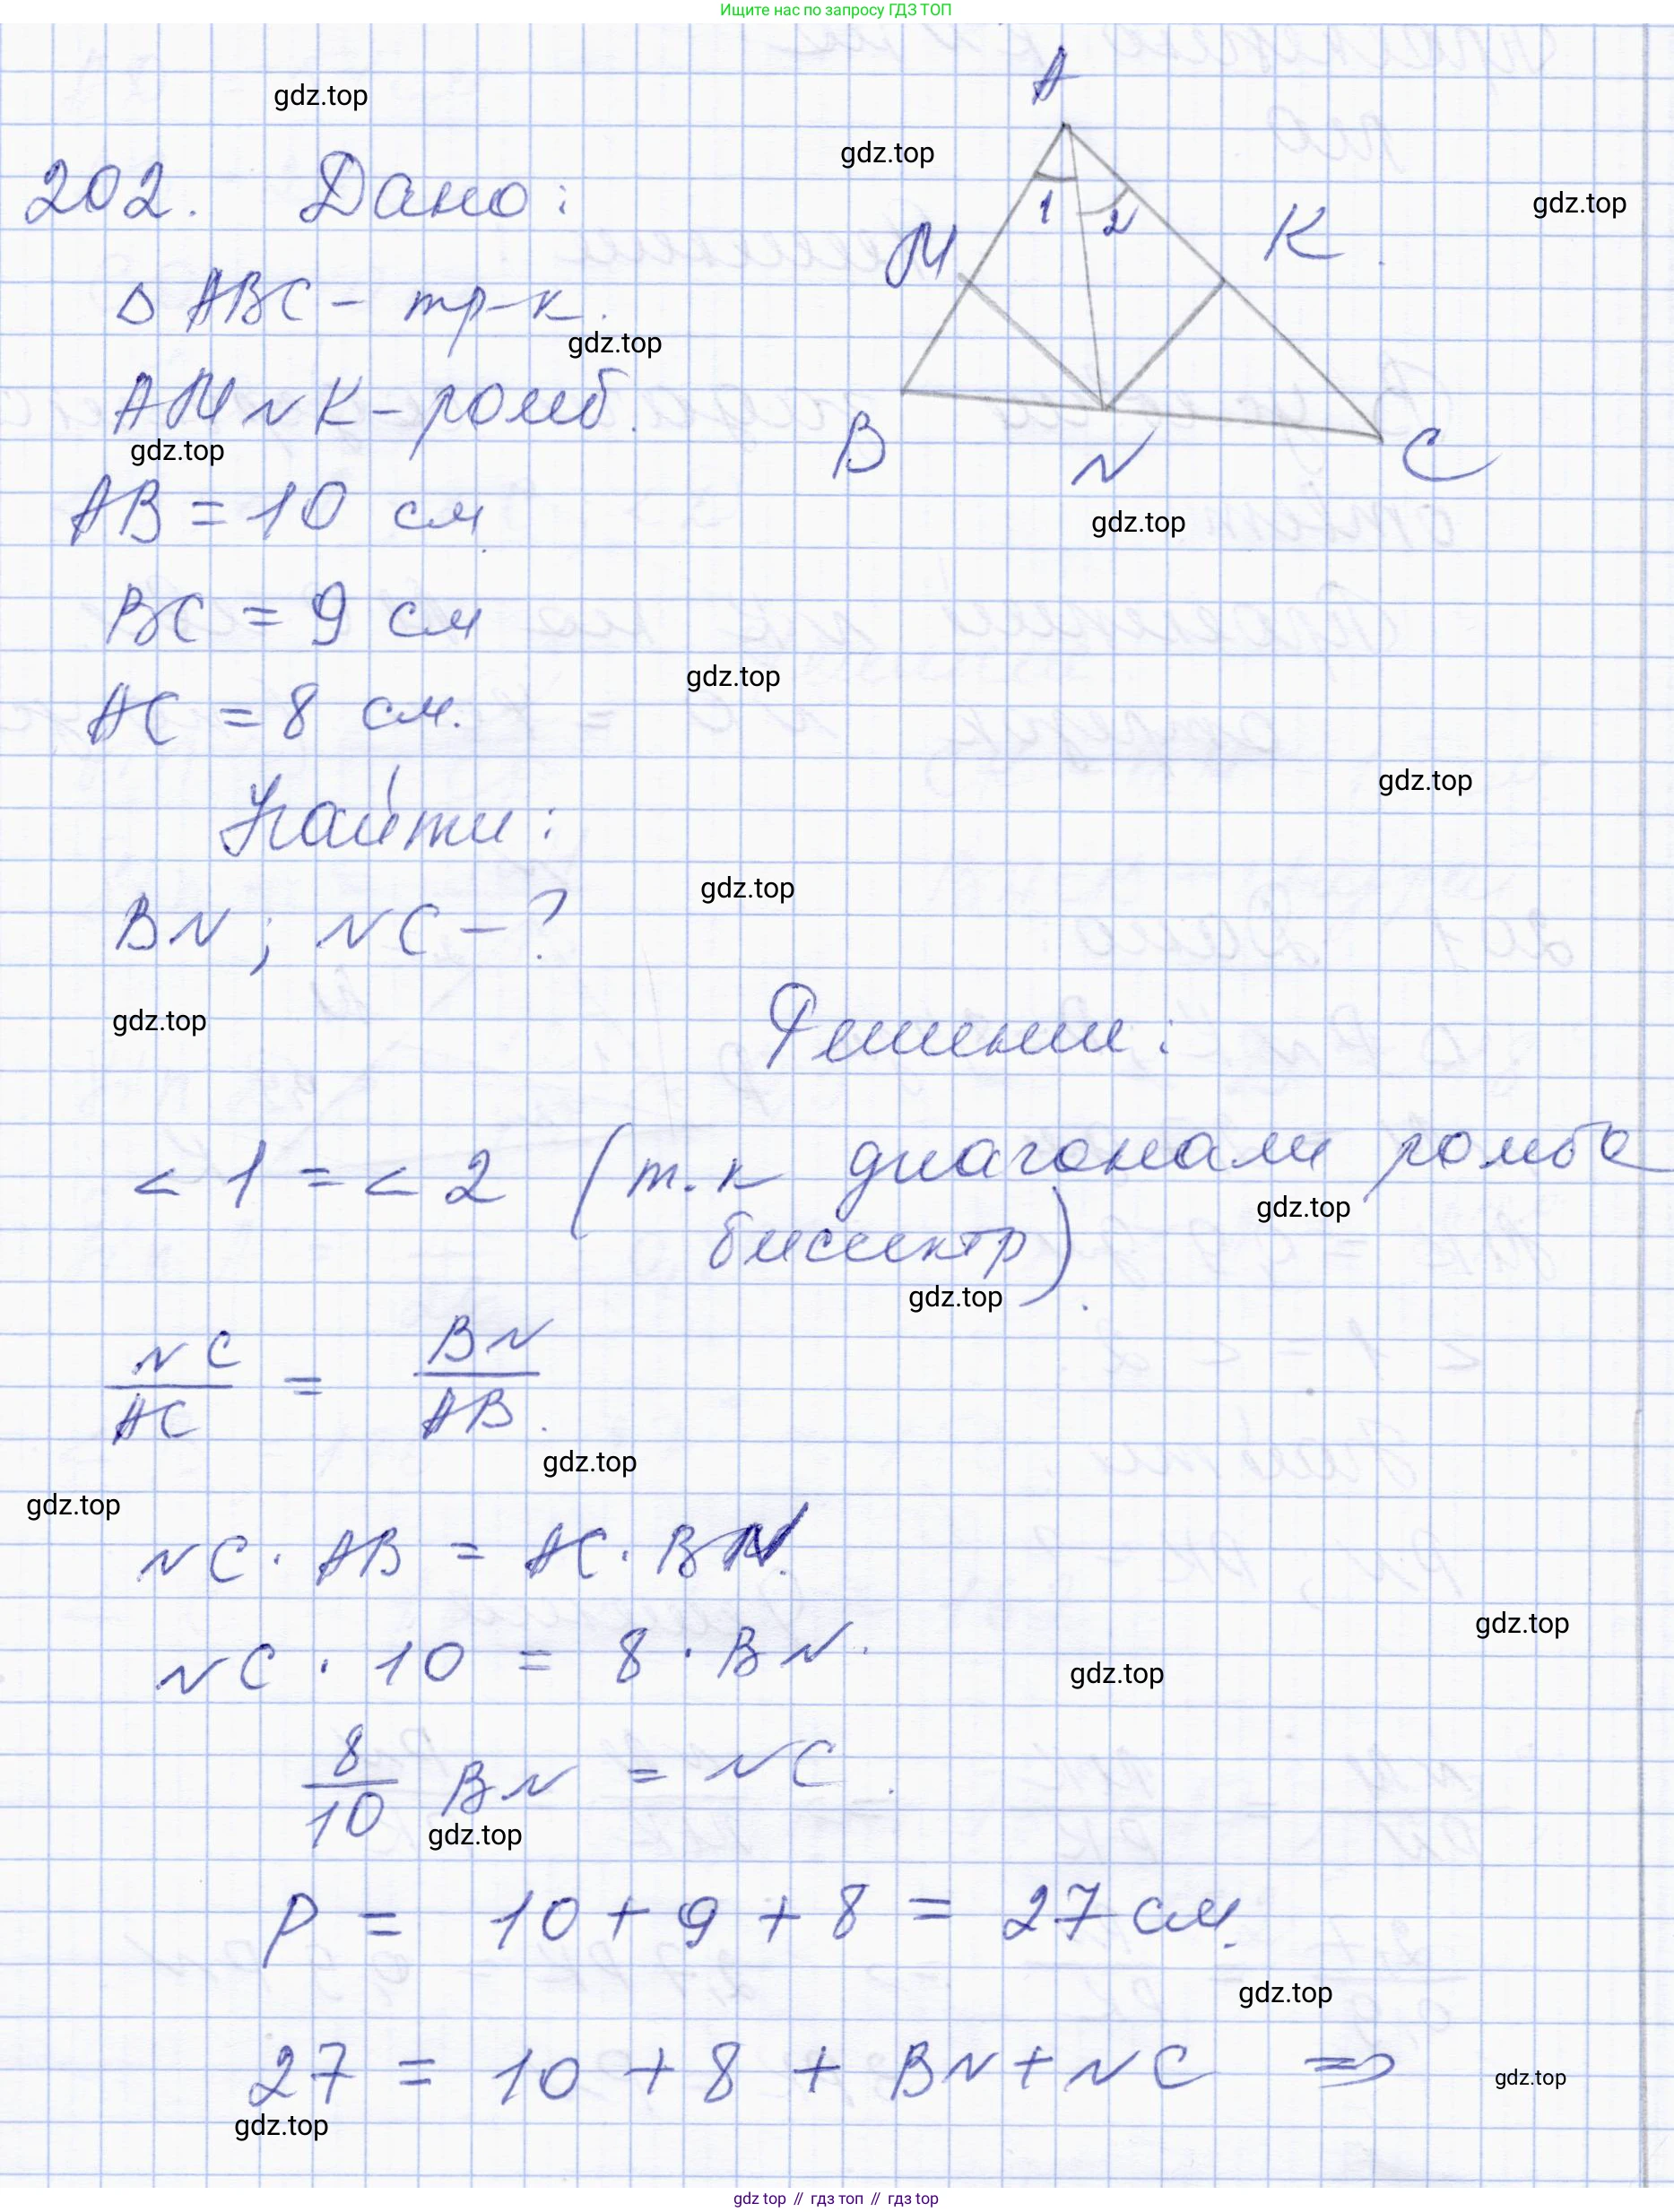 Ищите нас по запросу ГДЗ ТОП
A
gdz.top
gdz.top
202. Дано:
gdz.top
1 2
M K
△ ABC - тр-к.
gdz.top
AMNK - ромб.
B N C
gdz.top
AB = 10 см
gdz.top
BC = 9 см
gdz.top
AC = 8 см.
gdz.top
Найти:
gdz.top
BN ; NC - ?
gdz.top
Решение:
< 1 = < 2 (т.к диагонали ромба
gdz.top
биссектр).
gdz.top
NC/AC = BN/AB.
gdz.top
gdz.top
NC · AB = AC · BN.
gdz.top
NC · 10 = 8 · BN.
gdz.top
8/10 BN = NC.
gdz.top
P = 10 + 9 + 8 = 27 см.
gdz.top
27 = 10 + 8 + BN + NC =>
gdz.top
gdz.top
gdz top // гдз топ // gdz top